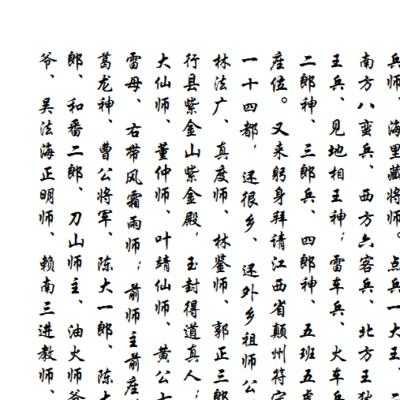 兵师、海里藏将师。点兵一大王、
南方八蛮兵、西方六客兵、北方王狄
王兵、见地相王神；雷车兵、火车兵
二郎神、三郎兵、四郎神、五班五虎
座位。又来躬身拜请江西省颠州符
一十四都，还很乡、还外乡祖师公
林法广、真度师、林鉴师、郭正三郎
行县紫金山紫金殿，玉封得道真人；
大仙师、董仲师、叶靖仙师、黄公七
雷母、右带风霜雨师；前师主前座
葛龙神、曹公将军、陈大一郎、陈大
郎、和番二郎、刀山师主、油火师爷
爷、吴法海正明师、赖南三进教师、